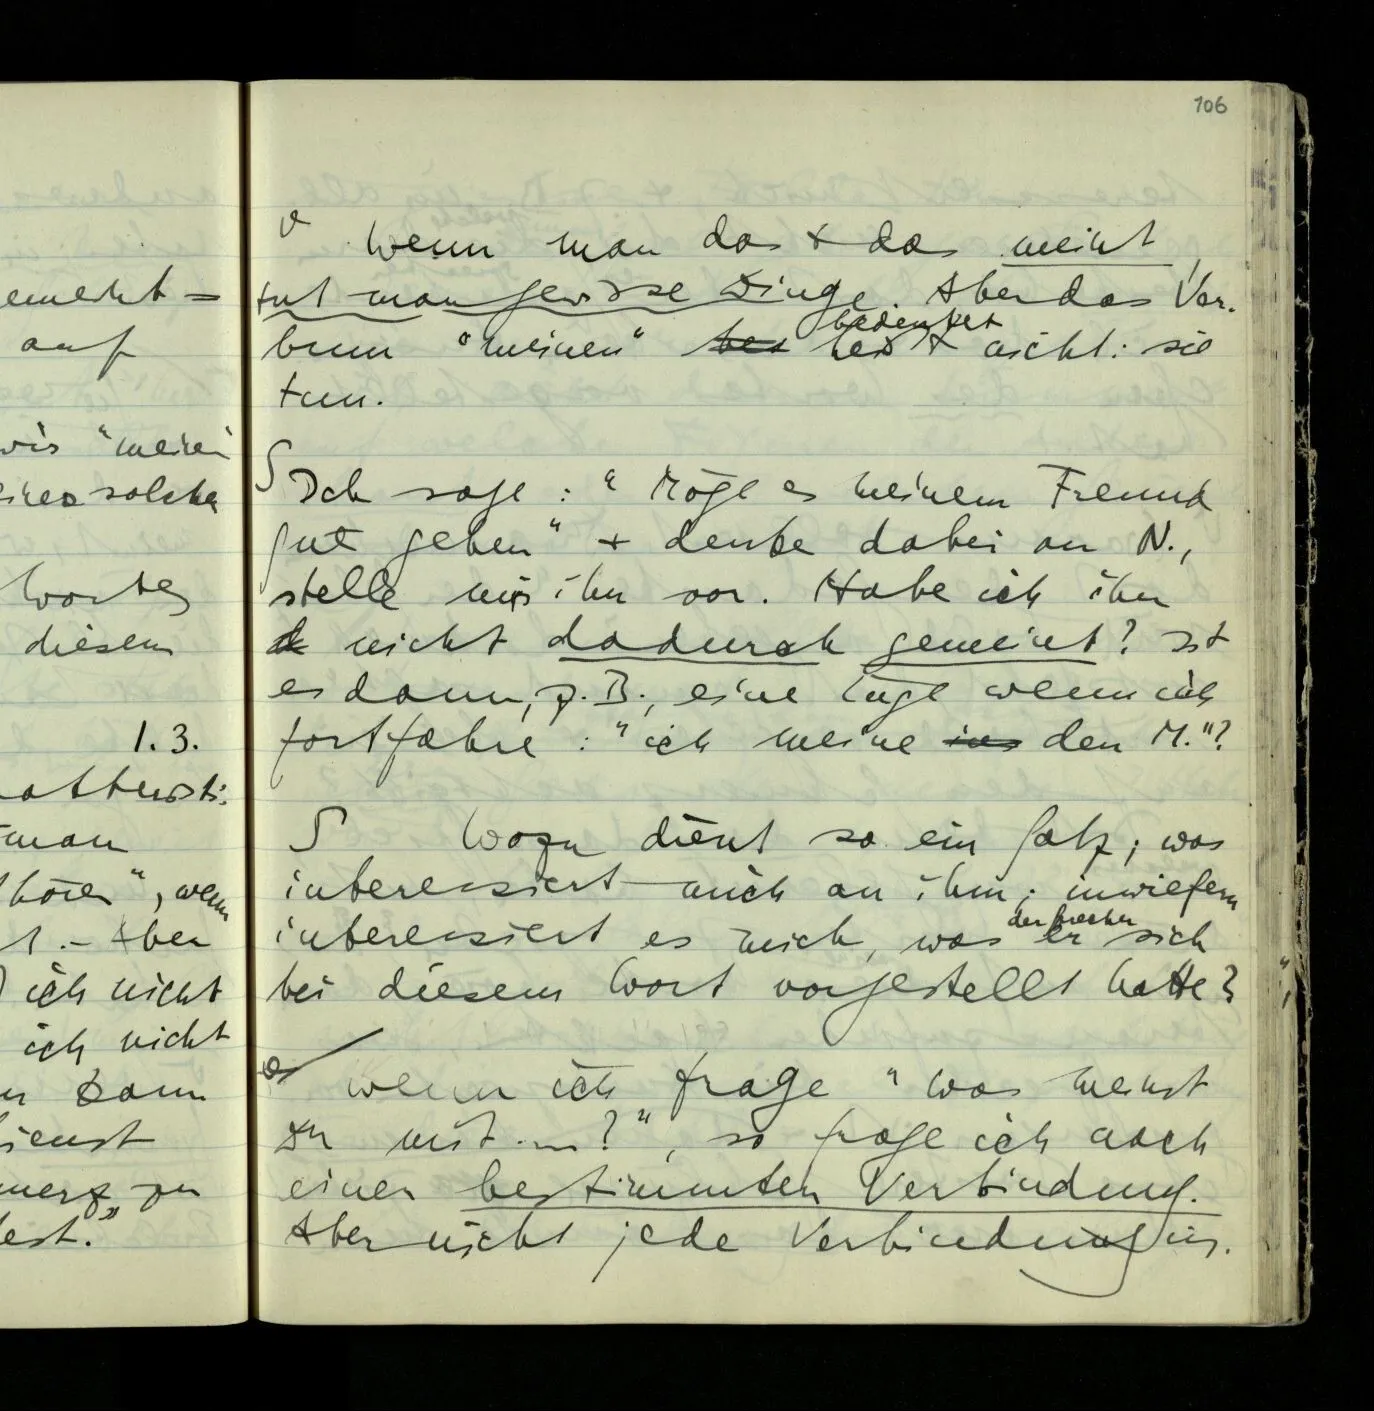 emerkt =
auf
"meinen
eines solchen
Wortes
diesem
1.3.
man
hören", wenn
t. – Aber
ich nicht
ich nicht
kann
dienst
merz zu
est."
106
Wenn man das + das meint,
tut man gewisse Dinge. Aber das Ver-
bedeutet
bum "meinen" hei heißt nicht: sie
tun.
∫ Ich sage: "Möge es meinem Freund
gut gehen" + denke dabei an N.,
stelle mir ihn vor. Habe ich ihn
d nicht dadurch gemeint? Ist
es dann, z.B., eine Lüge wenn ich
fortfahre: "ich meine den M."?
∫ Wozu dient so ein Satz; was
interessiert mich an ihm; inwiefern
der Sprecher
interessiert es mich, was er sich
bei diesem Wort vorgestellt hatte?
Wenn ich frage "Was meinst
Du mit ...?", so frage ich nach
einer bestimmten Verbindung.
Aber nicht jede Verbindung